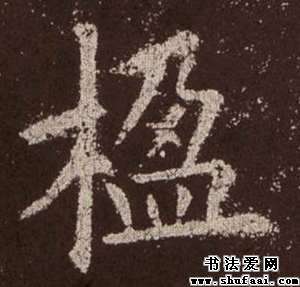 楹
书法爱网
www.shufaai.com